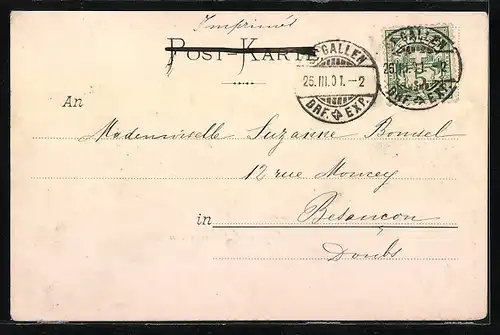 Imprimés
POST-KARTE
ST. GALLEN
26.III.01.-2
BRF. EXP.
ST. GALLEN
26.III.01.-2
BRF. EXP.
5
An
Mademoiselle Suzanne Bonnel
12 rue Moncey
in Besançon
Doubs